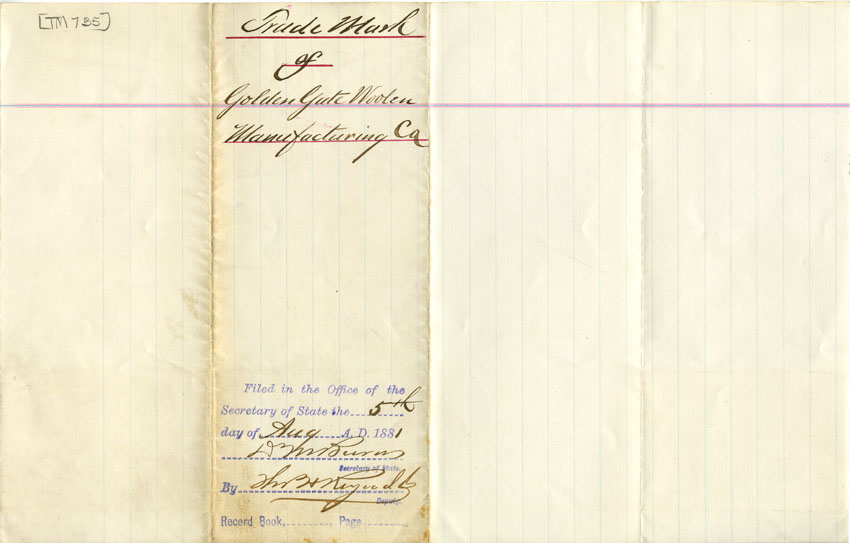 [TM 735]
Trade Mark
of
Golden Gate Woolen
Manufacturing Co
Filed in the Office of the
Secretary of State the 5th
day of Aug A.D. 1881
D M Burns
Secretary of State.
By Tho B Reynolds
Deputy.
Record Book, Page